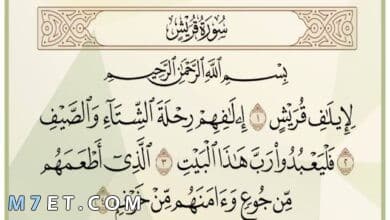 سُورَةُ قُرَيْشٍ
بِسْمِ ٱللَّهِ ٱلرَّحْمَٰنِ ٱلرَّحِيمِ
لِإِيلَٰفِ قُرَيْشٍ ١ إِۦلَٰفِهِمْ رِحْلَةَ ٱلشِّتَآءِ وَٱلصَّيْفِ
٢ فَلْيَعْبُدُوا۟ رَبَّ هَٰذَا ٱلْبَيْتِ ٣ ٱلَّذِىٓ أَطْعَمَهُم
مِّن جُوعٍ وَءَامَنَهُم مِّنْ خَوْفٍۭ
M7ET.COM